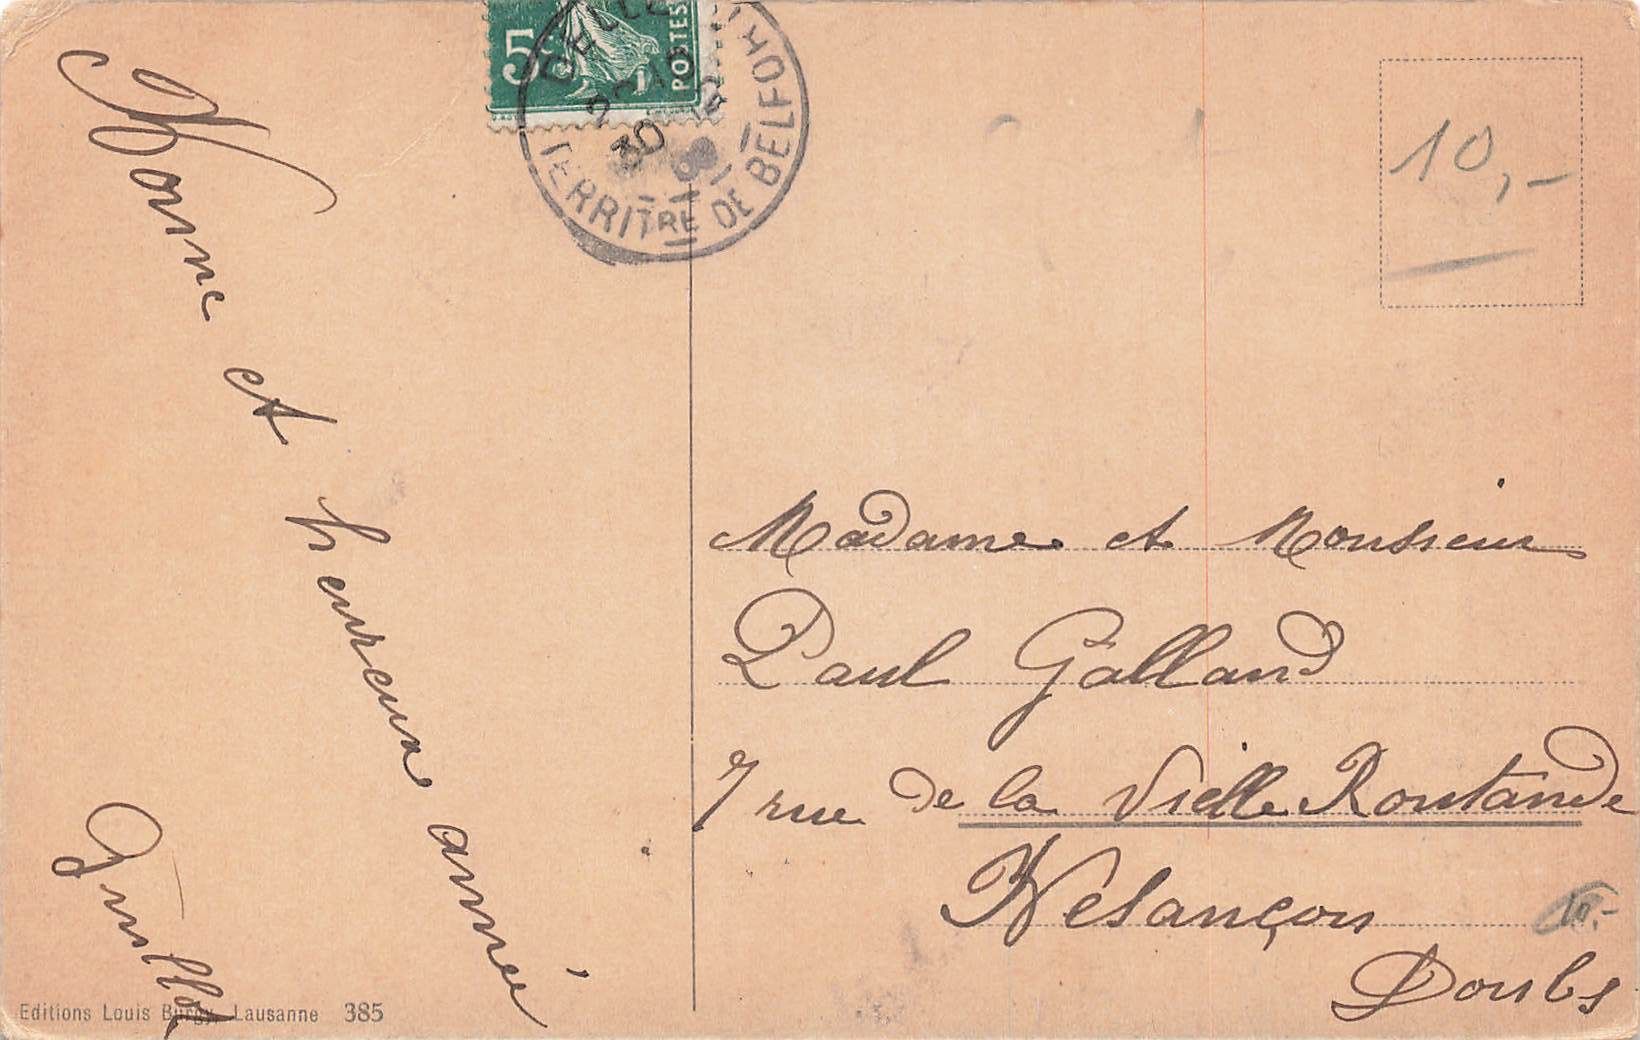 5
POSTES
DELLE
TERRITRE DE BELFORT
30
10,-
Bonne et heureuse année
Madame et Monsieur
Paul Galland
7 rue de la Vielle Rontande
Besançon
Doubs
10.-
Editions Louis Burgy, Lausanne 385